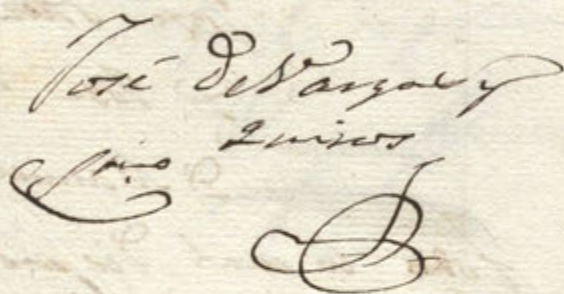 José De Vargas y
Quiros